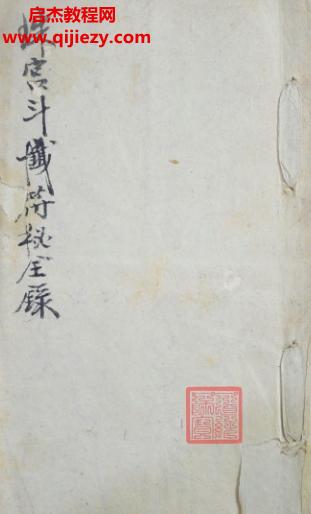 启杰教程网
www.qijiezy.com
珠宫斗懺符秘全錄